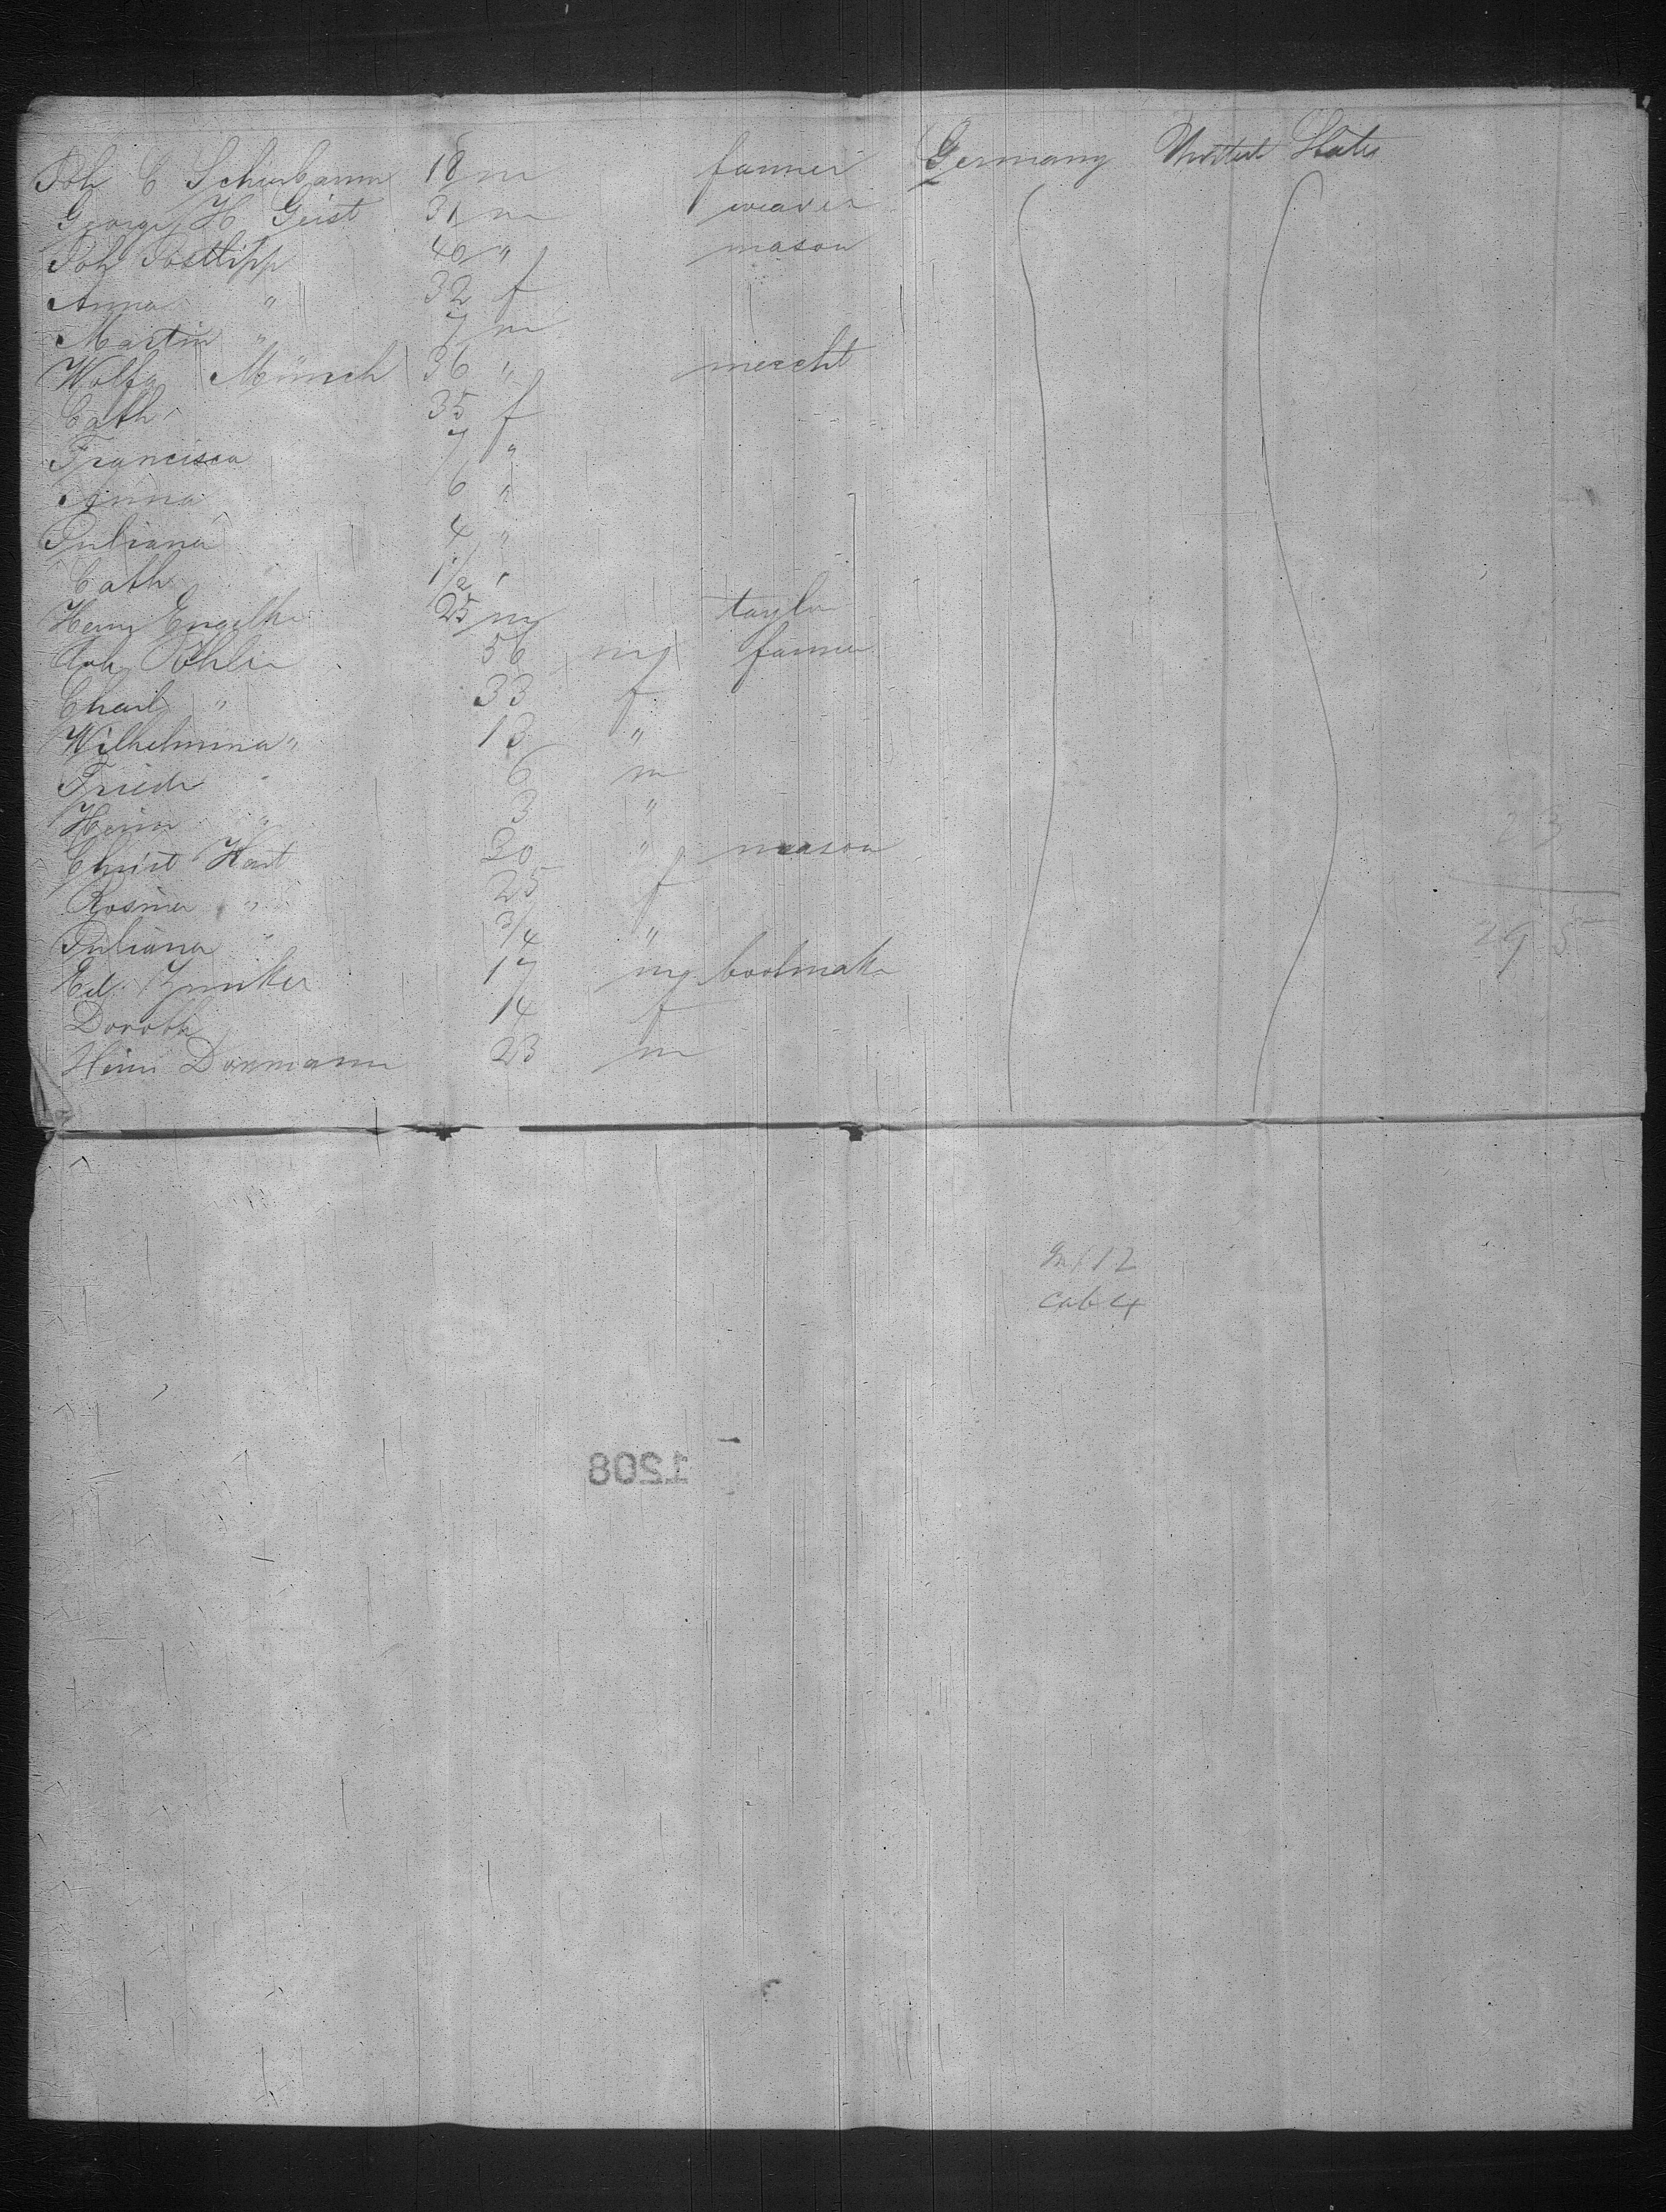 Joh C Schierbaum 18 m farmer Germany United States
George H Geist 31 m weaver
Joh Posttipp 40 " mason
Anna " 32 f
Martin " 7 m
Wolfg Münsch 36 " mercht
Cath 35 f
Francisca 7 "
Anna 6 "
Juliana 4 "
Cath 1/2 "
Henry Engelke 25 m taylor
Joh Pohler 56 m farmer
Charl " 33 f
Wilhelmina " 13 "
Friedr 6 m
Heinr " 3 "
23
Christ Hart 30 " mason
Rosina " 25 f
Juliana " 3/4 "
295
Ed. Zunker 17 m bootmaker
Doroth 14 f
Heinr Dormann 23 m
112
cab 4
1208